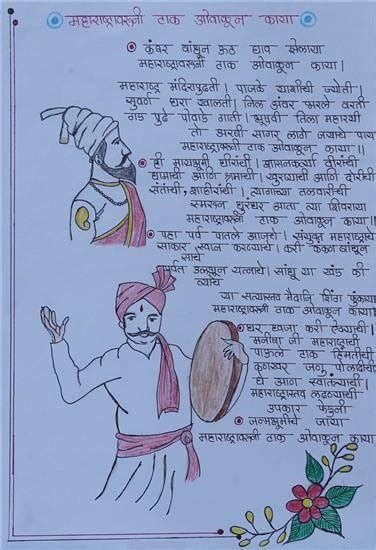 महाराष्ट्रावरूनी टाक ओवाळून काया
कंबर बांधून ऊठ घाव झेलाया
महाराष्ट्रावरूनी टाक ओवाळून काया।
महाराष्ट्र मंदिरापुढती। पाजळे याशीची ज्योती।
सुवर्ण धरा खालती। निल अंबर भरले वरती
गड पुढे पोवाडे गाती। भूषवी तिला महारथी
तो अरबी सागर लागे जयाचे पाया
महाराष्ट्रावरूनी टाक ओवाळून काया।।
ही मायभूमी धीरांची। शासनकर्त्या वीरांची
घामाची आणि श्रमाची। खुरप्याची आणि दोरीची
संतांची, शाहीरांची। त्यागाच्या तलवारीची
स्मरून धुरंधर आता त्या शिवराया
महाराष्ट्रावरूनी टाक ओवाळून काया।।
पहा पर्व पातले आजचे। संयुक्त महाराष्ट्राचे
साकार स्वप्न करण्याचे। करी कंकण बांधून
साचे
पर्वत उलथून यत्नाचे। सांधू या खंड की
त्याचे
या सत्यास्तव मैदानि शिंग फुंकाया
महाराष्ट्रावरूनी टाक ओवाळून काया।
धर ध्वजा करी ऐक्याची।
मनीषा जी महाराष्ट्राची
पाऊले टाक हिंमतीची
कणखर जणू पोलादीची
घे आण स्वातंत्र्याची।
महाराष्ट्रास्तव लढण्याची
उपकार फेडुनी
जन्मभूमीचे जाया
महाराष्ट्रावरूनी टाक ओवाळून काया